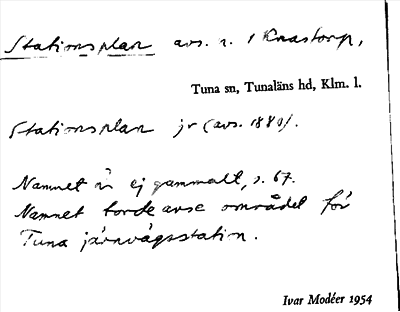 Stationsplan avs. n. 1 Knastorp,
Tuna sn, Tunaläns hd, Klm. l.
Stationsplan jr (avs. 1880).
Namnet är ej gammalt, s. 67.
Namnet torde avse området för
Tuna järnvägsstation.
Ivar Modéer 1954